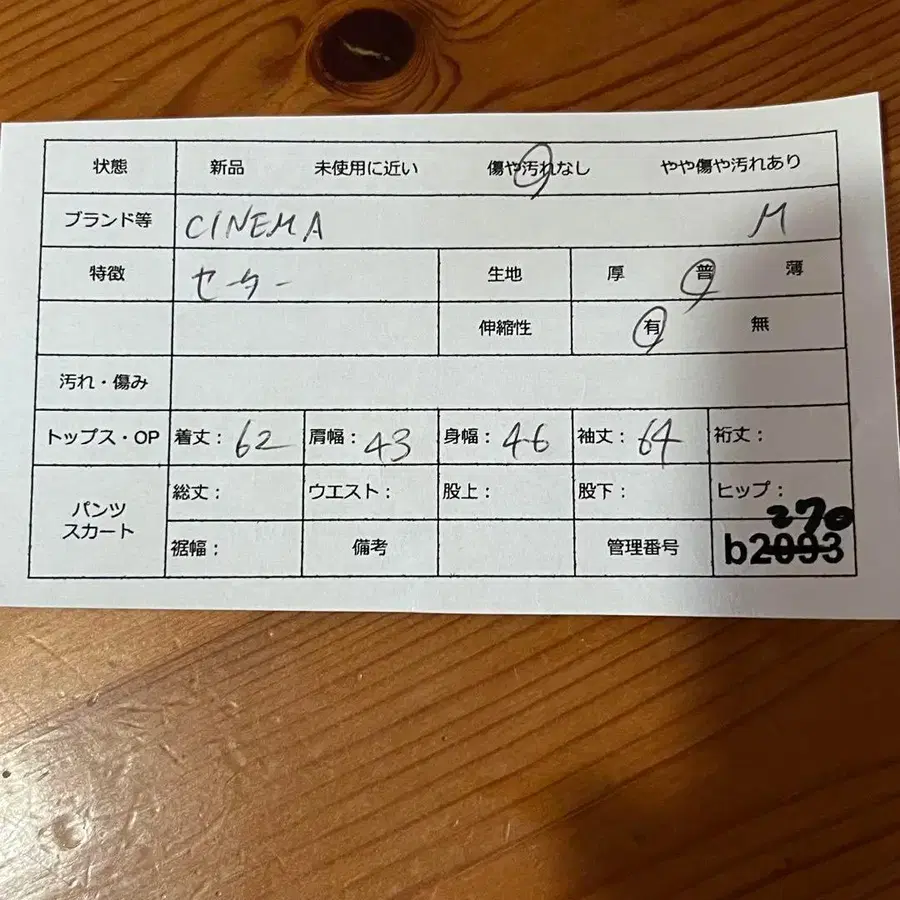 状態 新品 未使用に近い 傷や汚れなし やや傷や汚れあり
ブランド等 CINEMA M
特徴 セーター 生地 厚 普 薄
伸縮性 有 無
汚れ・傷み
トップス・OP 着丈: 62 肩幅: 43 身幅: 46 袖丈: 64 裄丈:
パンツ スカート 総丈: ウエスト: 股上: 股下: ヒップ:
270
裾幅: 備考 管理番号 b2093